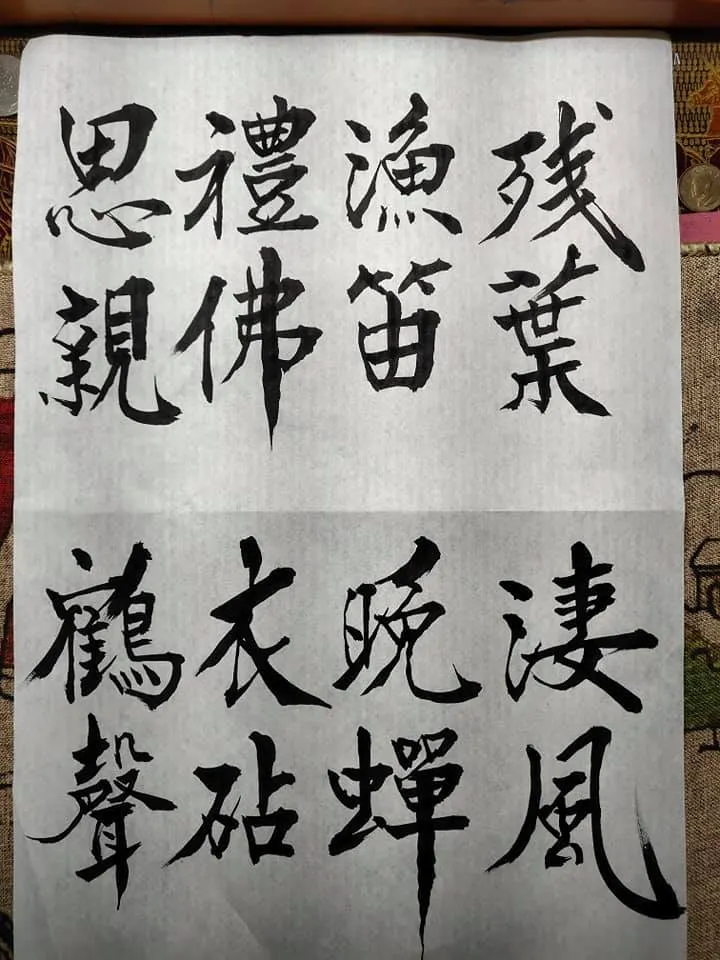 残葉淒風
漁笛晚蟬
禮佛衣砧
思親鶴聲